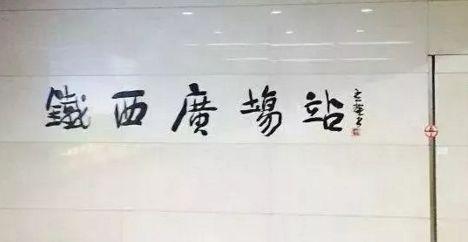 鐵西廣場站